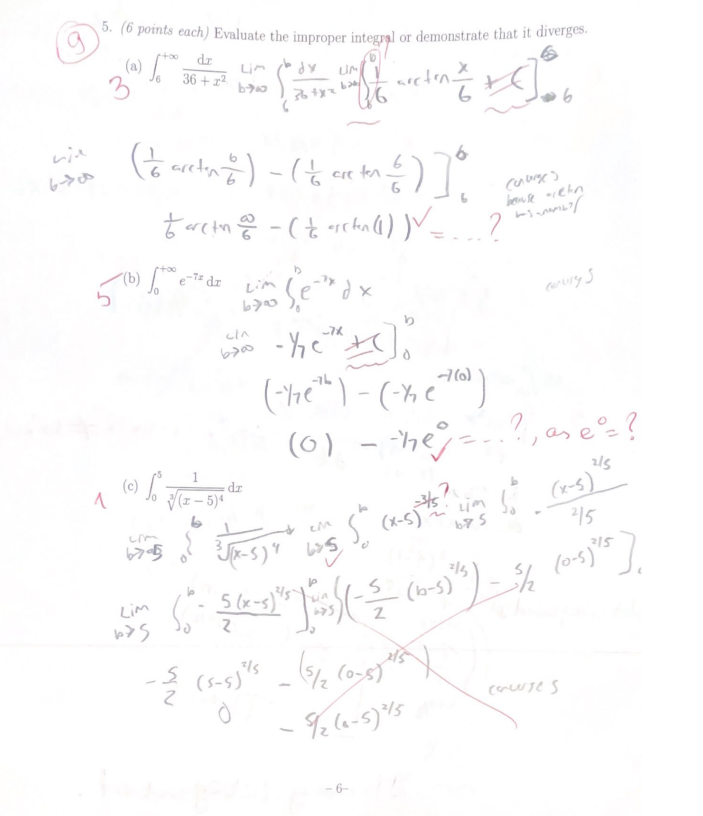 9
5. (6 points each) Evaluate the improper integral or demonstrate that it diverges.
(a) ∫_6^{+∞} dx/(36 + x²) Lim b→∞ ∫_6^b dx/(36+x²) Lim b→∞ 1/6 arctan x/6 + C ]_6^b
3
Lim b→∞ (1/6 arctan b/6) - (1/6 arctan 6/6) ]_6^b
converges
1/6 arctan ∞/6 - (1/6 arctan(1)) ✓ = ...?
(b) ∫_0^{+∞} e^{-7x} dx Lim b→∞ ∫_0^b e^{-7x} dx
5
Lim b→∞ -1/7 e^{-7x} + C ]_0^b
(-1/7 e^{-7b}) - (-1/7 e^{-7(0)})
(0) - -1/7 e^0 ✓ = ...?, as e^0 = ?
(c) ∫_0^5 1/∛((x - 5)⁴) dx
1
Lim b→5 ∫_0^b 1/∛((x-5)⁴) Lim b→5 ∫_0^b (x-5)^{-3/5} ? Lim b→5 ∫_0^b - (x-5)^{2/5}/(2/5)
✓
Lim b→5 ∫_0^b - 5(x-5)^{2/5}/2 ]_0^b Lim b→5 (-5/2 (b-5)^{2/5}) - 5/2 (0-5)^{2/5} ]
-5/2 (5-5)^{2/5} - (5/2 (0-5)^{2/5})
converges
0 - 5/2 (0-5)^{2/5}
-6-